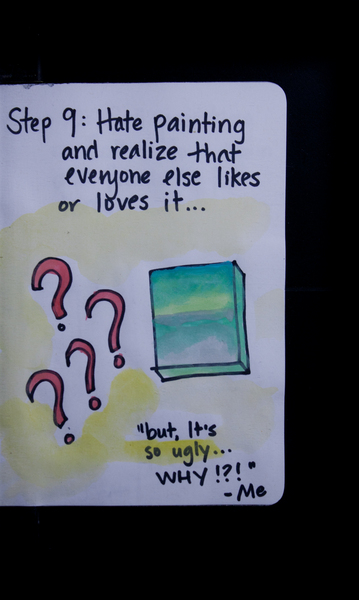 Step 9: Hate painting
and realize that
everyone else likes
or loves it...
? ? ? ?
"but, It's
so ugly...
WHY !?!"
- Me